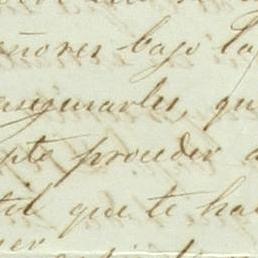 eñores bajo la
asegurarles, qu
pto proceder a
til que te ha